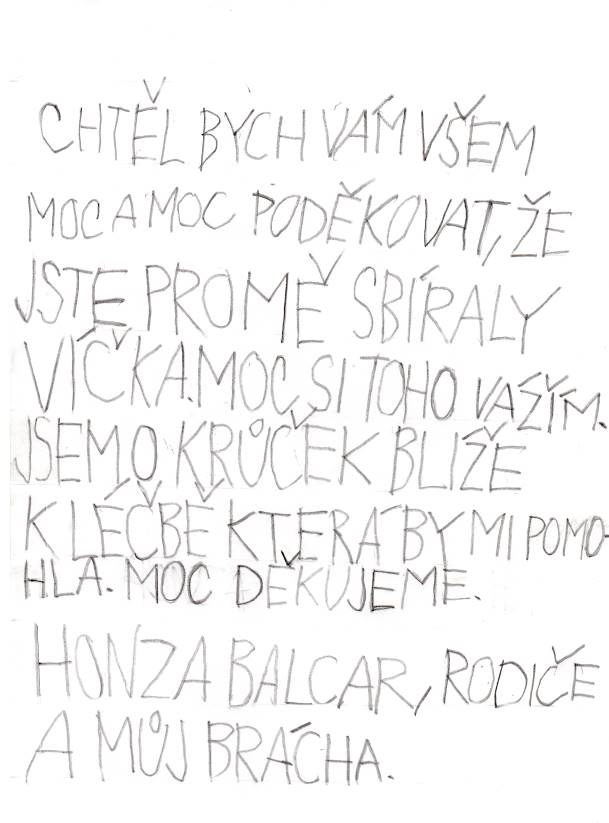 CHTĚL BYCH VÁM VŠEM
MOC A MOC PODĚKOVAT, ŽE
JSTE PRO MĚ SBÍRALY
VÍČKA. MOC SI TOHO VÁŽÍM.
JSEM O KRŮČEK BLÍŽE
K LÉČBĚ KTERÁ BY MI POMO-
HLA. MOC DĚKUJEME.
HONZA BALCAR, RODIČE
A MŮJ BRÁCHA.